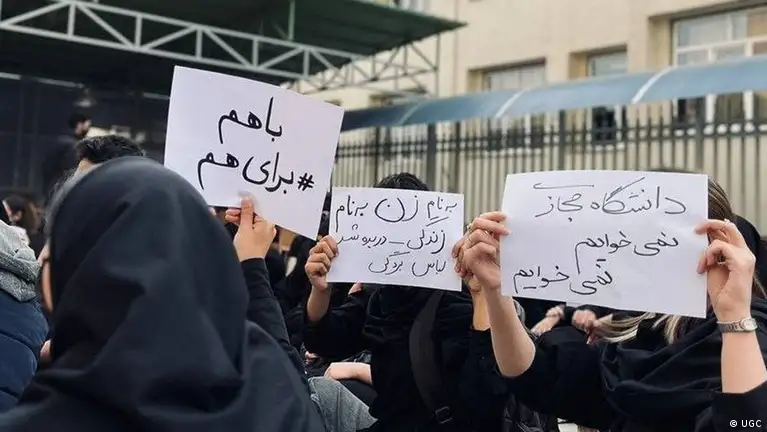 باهم
#برای هم
به نام زن به نام
زندگی - دریده شد
لباس بردگی
دانشگاه مجازی
نمی خوایم
نمی خوایم
© UGC